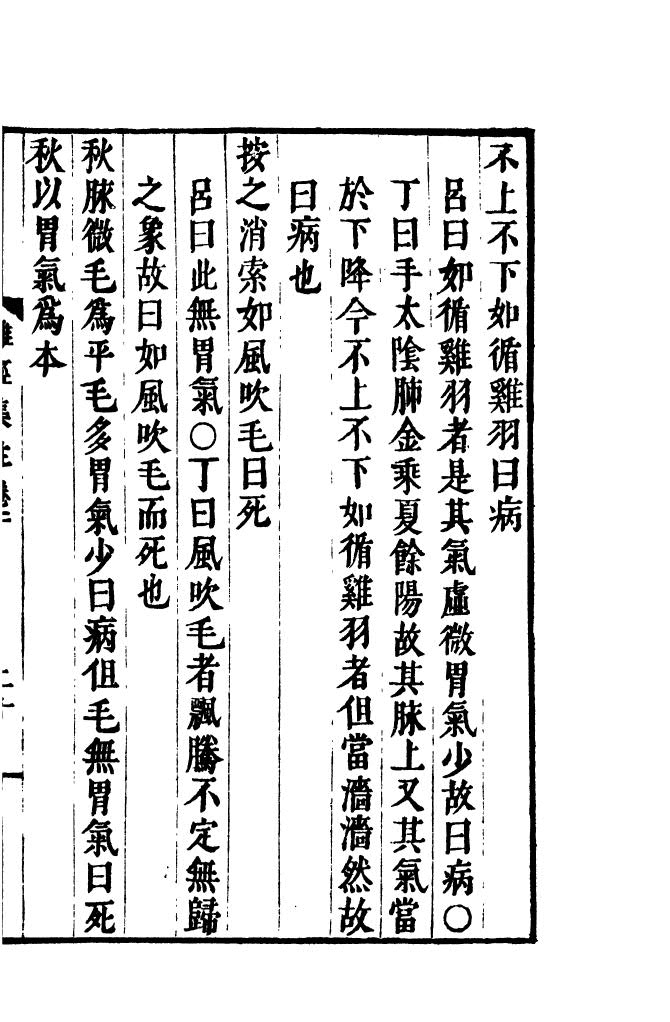 不上不下如循雞羽曰病
呂曰如循雞羽者是其氣虛微胃氣少故曰病○
丁曰手太陰肺金乘夏餘陽故其脉上又其氣當
於下降今不上不下如循雞羽者但當濇濇然故
曰病也
按之消索如風吹毛曰死
呂曰此無胃氣○丁曰風吹毛者飄騰不定無歸
之象故曰如風吹毛而死也
秋脉微毛爲平毛多胃氣少曰病但毛無胃氣曰死
秋以胃氣爲本
難經集註卷二